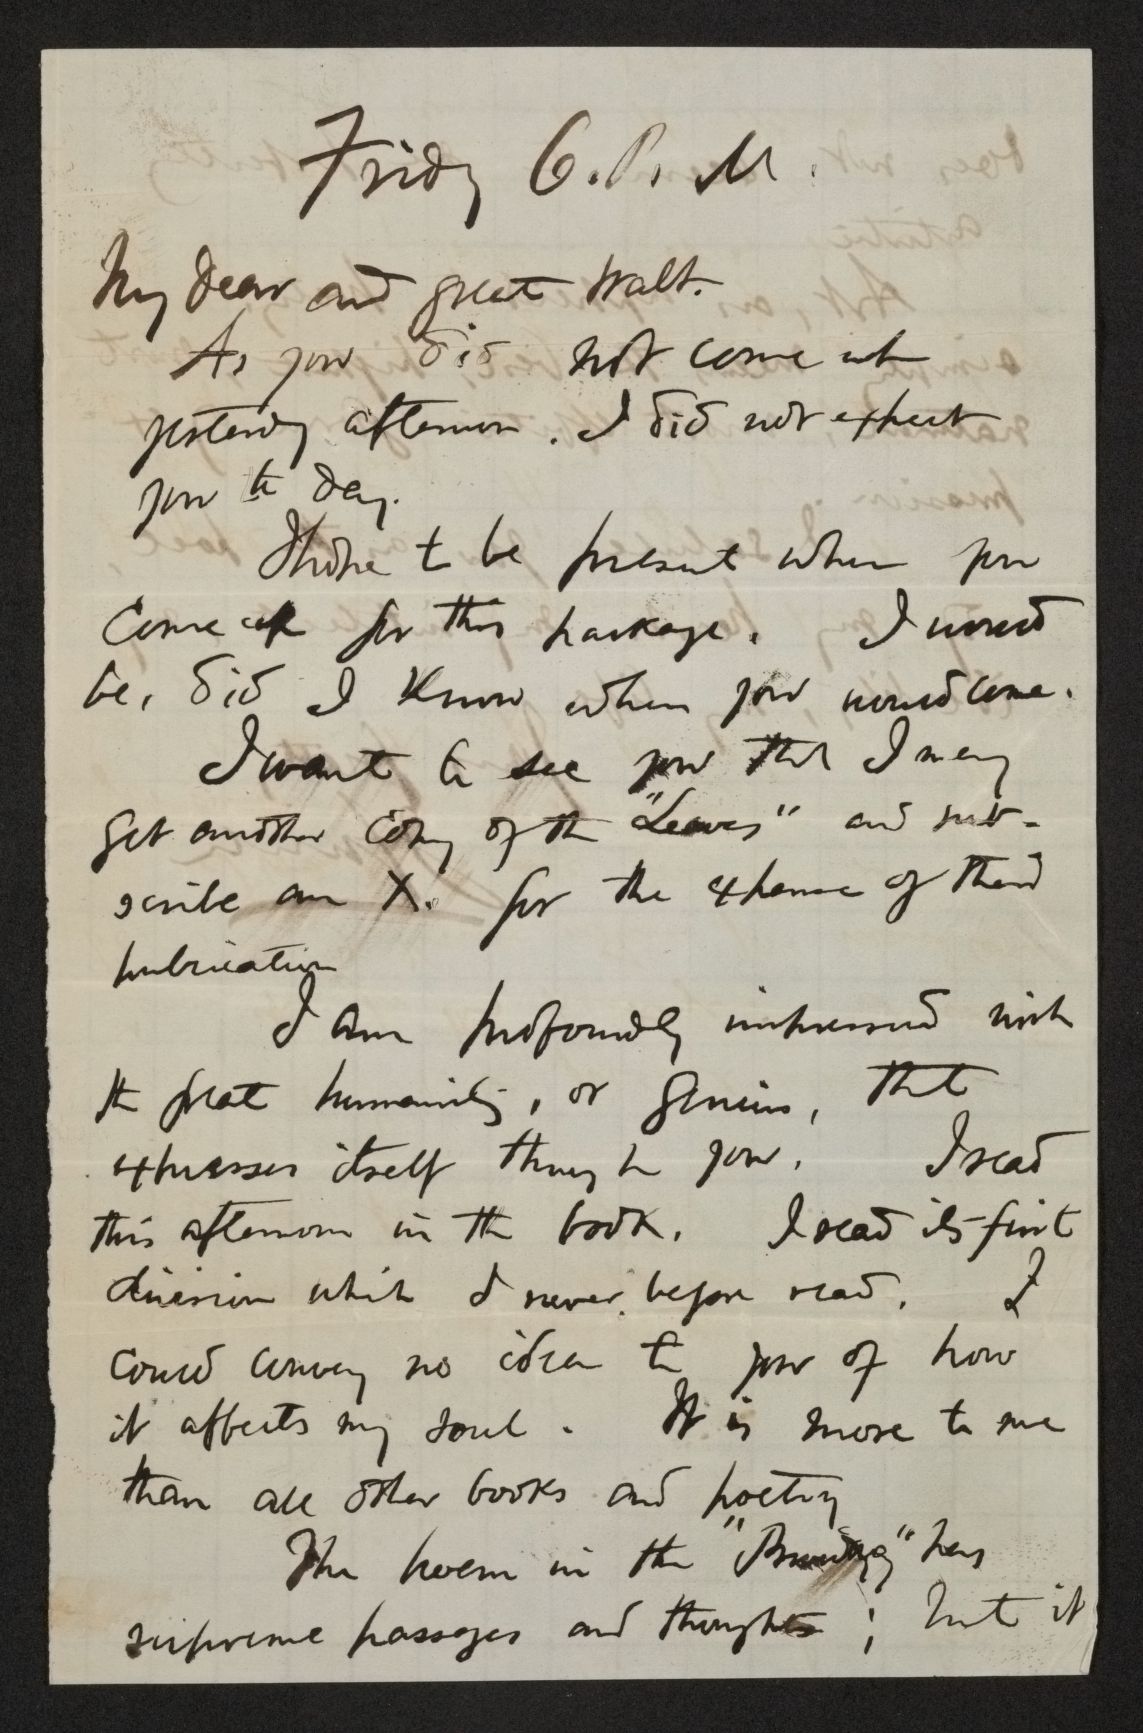 Friday 6. P. M.
My dear and great Walt.
As you did not come up
yesterday afternoon. I did not expect
you to day.
I hope to be present when you
come up for this package. I would
be, did I know when you would come.
I want to see you that I may
get another copy of the "Leaves" and sub-
scribe an X. for the expense of their
publication
I am profoundly impressed with
the great humanity, or genius, that
expresses itself through you. I read
this afternoon in the book. I read its first
division which I never before read. I
could convey no idea to you of how
it affects my soul. It is more to me
than all other books and poetry
The poem in the has
supreme passages and thoughts; but it